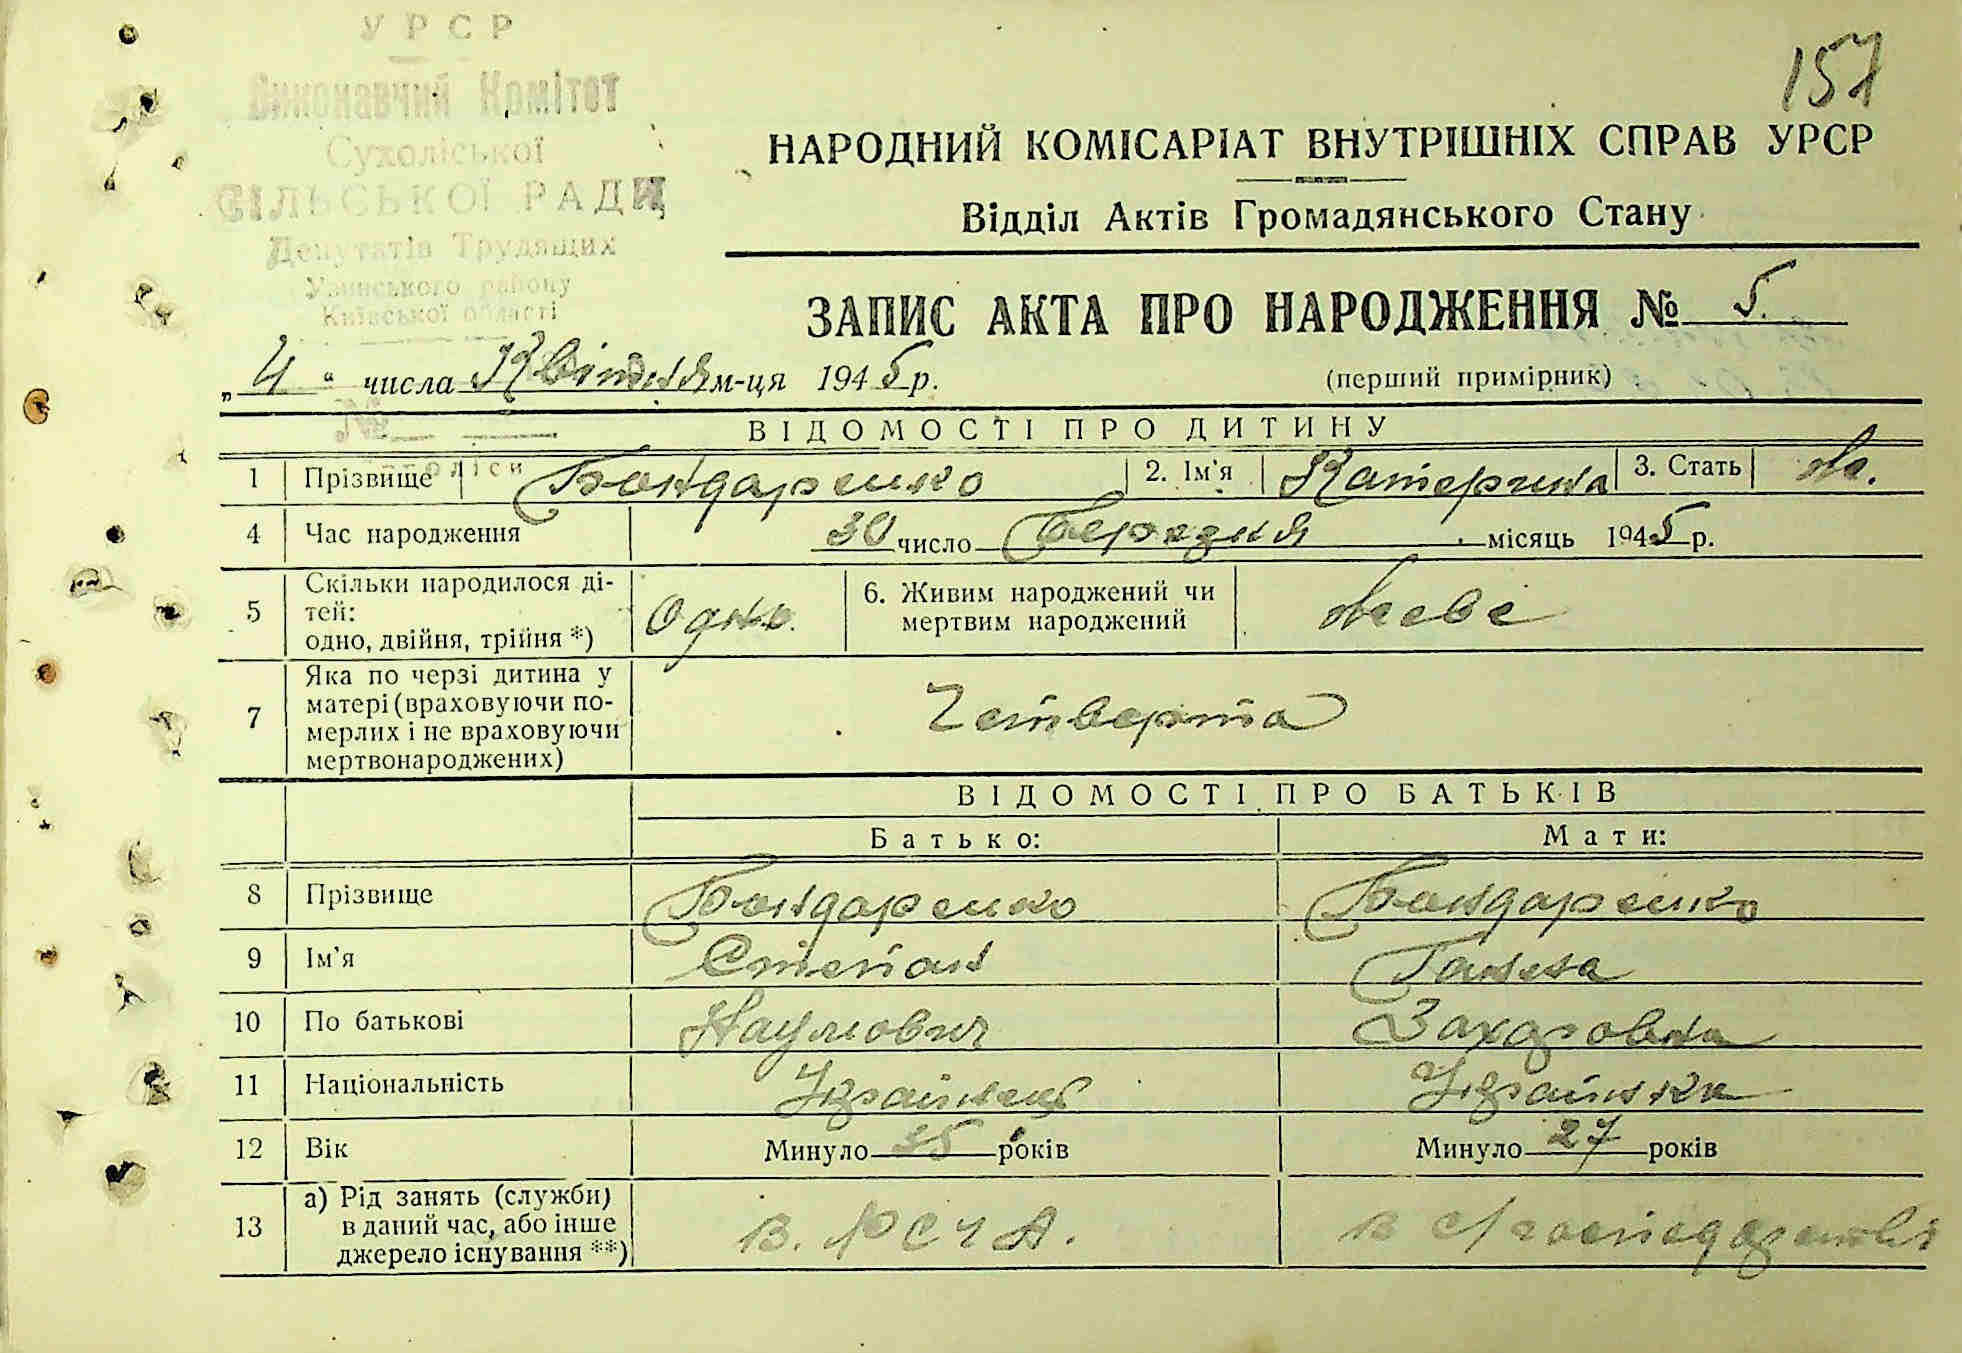 УРСР
Виконавчий Комітет
Сухоліської
СІЛЬСЬКОЇ РАДИ
Депутатів Трудящих
Узинського району
Київської області
№
157
НАРОДНИЙ КОМІСАРІАТ ВНУТРІШНІХ СПРАВ УРСР
Відділ Актів Громадянського Стану
ЗАПИС АКТА ПРО НАРОДЖЕННЯ № 5.
„4“ числа Квітня м-ця 1945 р.
(перший примірник)
ВІДОМОСТІ ПРО ДИТИНУ
1 Прізвище Бондаренко 2. Ім'я Катерина 3. Стать Ж.
4 Час народження 30 число Березня місяць 1945 р.
5 Скільки народилося ді-
тей:
одно, двійня, трійня *) Одно.
6. Живим народжений чи
мертвим народжений Живе
7 Яка по черзі дитина у
матері (враховуючи по-
мерлих і не враховуючи
мертвонароджених) Четверта
ВІДОМОСТІ ПРО БАТЬКІВ
Батько: Мати:
8 Прізвище Бондаренко Бондаренко
9 Ім'я Степан Ганна
10 По батькові Наумович Захаровна
11 Національність Українець Українка
12 Вік Минуло 35 років Минуло 27 років
13 а) Рід занять (служби)
в даний час, або інше
джерело існування **) В. РСЧА. В